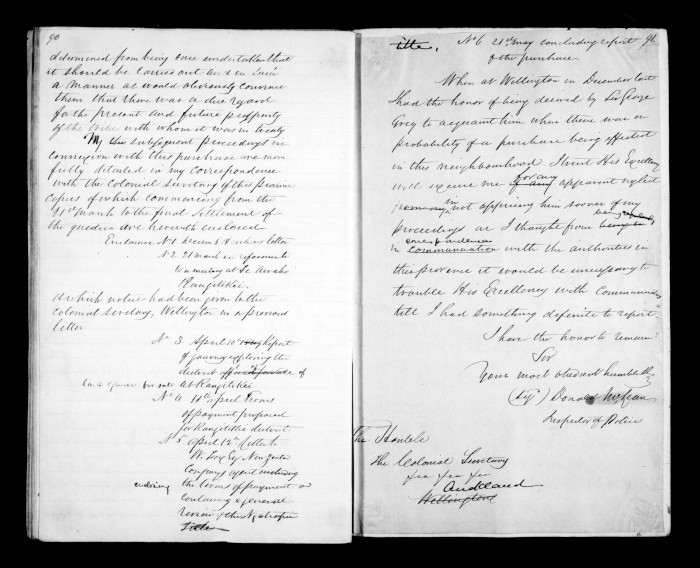 90
determined from being once undertaken that
it should be carried out and in such
a manner as would obviously convince
them that there was a due regard
for the present and future prosperity
of the tribe with whom it was in treaty
My subsequent proceedings in
connexion with this purchase are more
fully detailed in my correspondence
with the Colonial Secretary of this province
Copies of which commencing from the
21st March to the final settlement of
the question are herewith enclosed
Enclosure No 1 letter
No 2 21 March in reference to
a meeting at Te Awahi
Rangitikei.
of which notice had been given to the
Colonial Secretary, Wellington in a previous
letter
No 3 April 10th Report
of journey exploring the
district
at Rangitikei
No 4 11th April Terms
of payment proposed
for Rangitikei district
No 5 April 12th Letter to
W. Fox Esq New Zealand
Company
enclosing the terms of payment &
containing a general
review of the Ngatiapa
title
title, No 6 21st May concluding report 91.
of the purchase.
When at Wellington in December last
I had the honor of being desired by Sir George
Grey to acquaint him when there was a
probability of a purchase being effected
in this neighbourhood I trust His Excellency
will excuse me for any apparent neglect
in not apprising him sooner of my
proceedings as I thought from being
in correspondence
communication with the authorities in
this province it would be unnecessary to
trouble His Excellency with communications
till I had something definite to report.
I have the honor to remain
Sir
Your most obedient humble
(Sig) Donald McLean
Inspector of Police
The Honble
The Colonial Secretary
&c &c &c
Auckland
Wellington